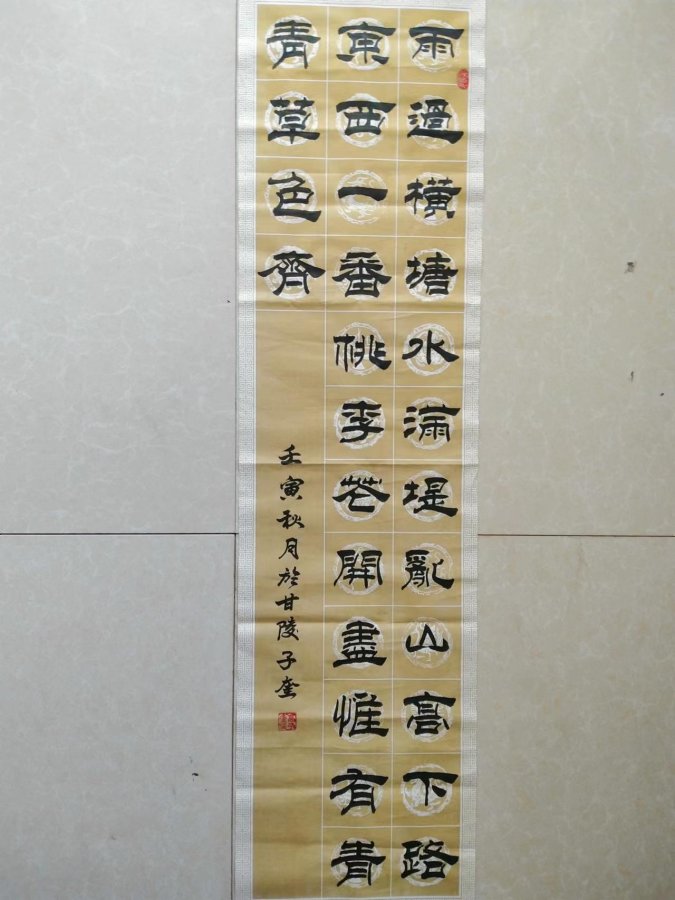 雨過横塘水滿堤亂山高下路
東西一番桃李花開盡惟有青
青草色齊
壬寅秋月於甘陵子奎